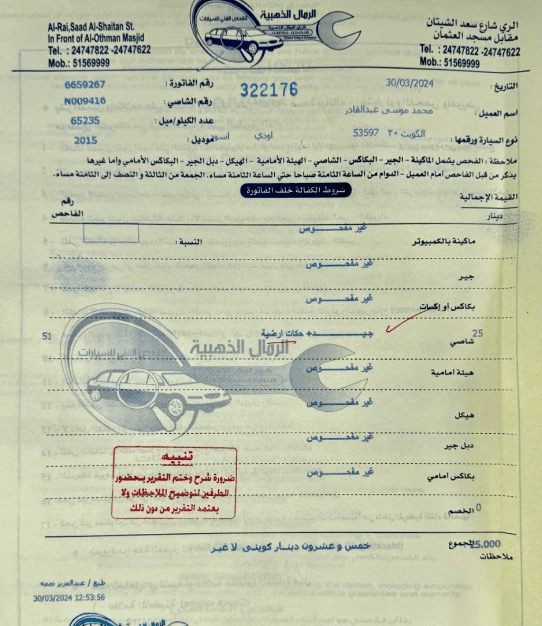 الري شارع سعد الشيتان
مقابل مسجد العثمان
Tel. : 24747822 -24747622
Mob.: 51569999
الرمال الذهبية
Al-Rai,Saad Al-Shaitan St.
In Front of Al-Othman Masjid
Tel. : 24747822 -24747622
Mob.: 51569999
التاريخ : 30/03/2024
322176
رقم الفاتورة : 6659267
اسم العميل : محمد موسى عبدالقادر
رقم الشاصي : N009416
عدد الكيلو/ميل : 65235
نوع السيارة ورقمها : الكويت ٣٠ 53597 اودي اسود
موديل : 2015
ملاحظة : الفحص يشمل الماكينة - الجير - البكاكس - الشاصي - الهيئة الأمامية - الهيكل - دبل الجير - البكاكس الأمامي وما غيرها
يذكر من قبل الفاحص أمام العميل - الدوام من الساعة الثامنة صباحا حتى الساعة الثامنة مساء، الجمعة من الثالثة و النصف إلى الثامنة مساء.
شروط الكفالة خلف الفاتورة
القيمة الإجمالية
دينار
رقم الفاحص
ماكينة بالكمبيوتر غير مفحوص النسبة :
جير غير مفحوص
بكاكس أو إكسات غير مفحوص
25 شاصي جيد + حكات ارضية 51
الرمال الذهبية
هيئة امامية غير مفحوص
هيكل غير مفحوص
دبل جير غير مفحوص
بكاكس امامي غير مفحوص
تنبيه
ضرورة شرح وختم التقرير بحضور
الطرفين لتوضيح الملاحظات ولا
يعتمد التقرير من دون ذلك
0 الخصم
المجموع 25.000 خمس و عشرون دينار كويتي لا غير
ملاحظات
30/03/2024 12:53:56